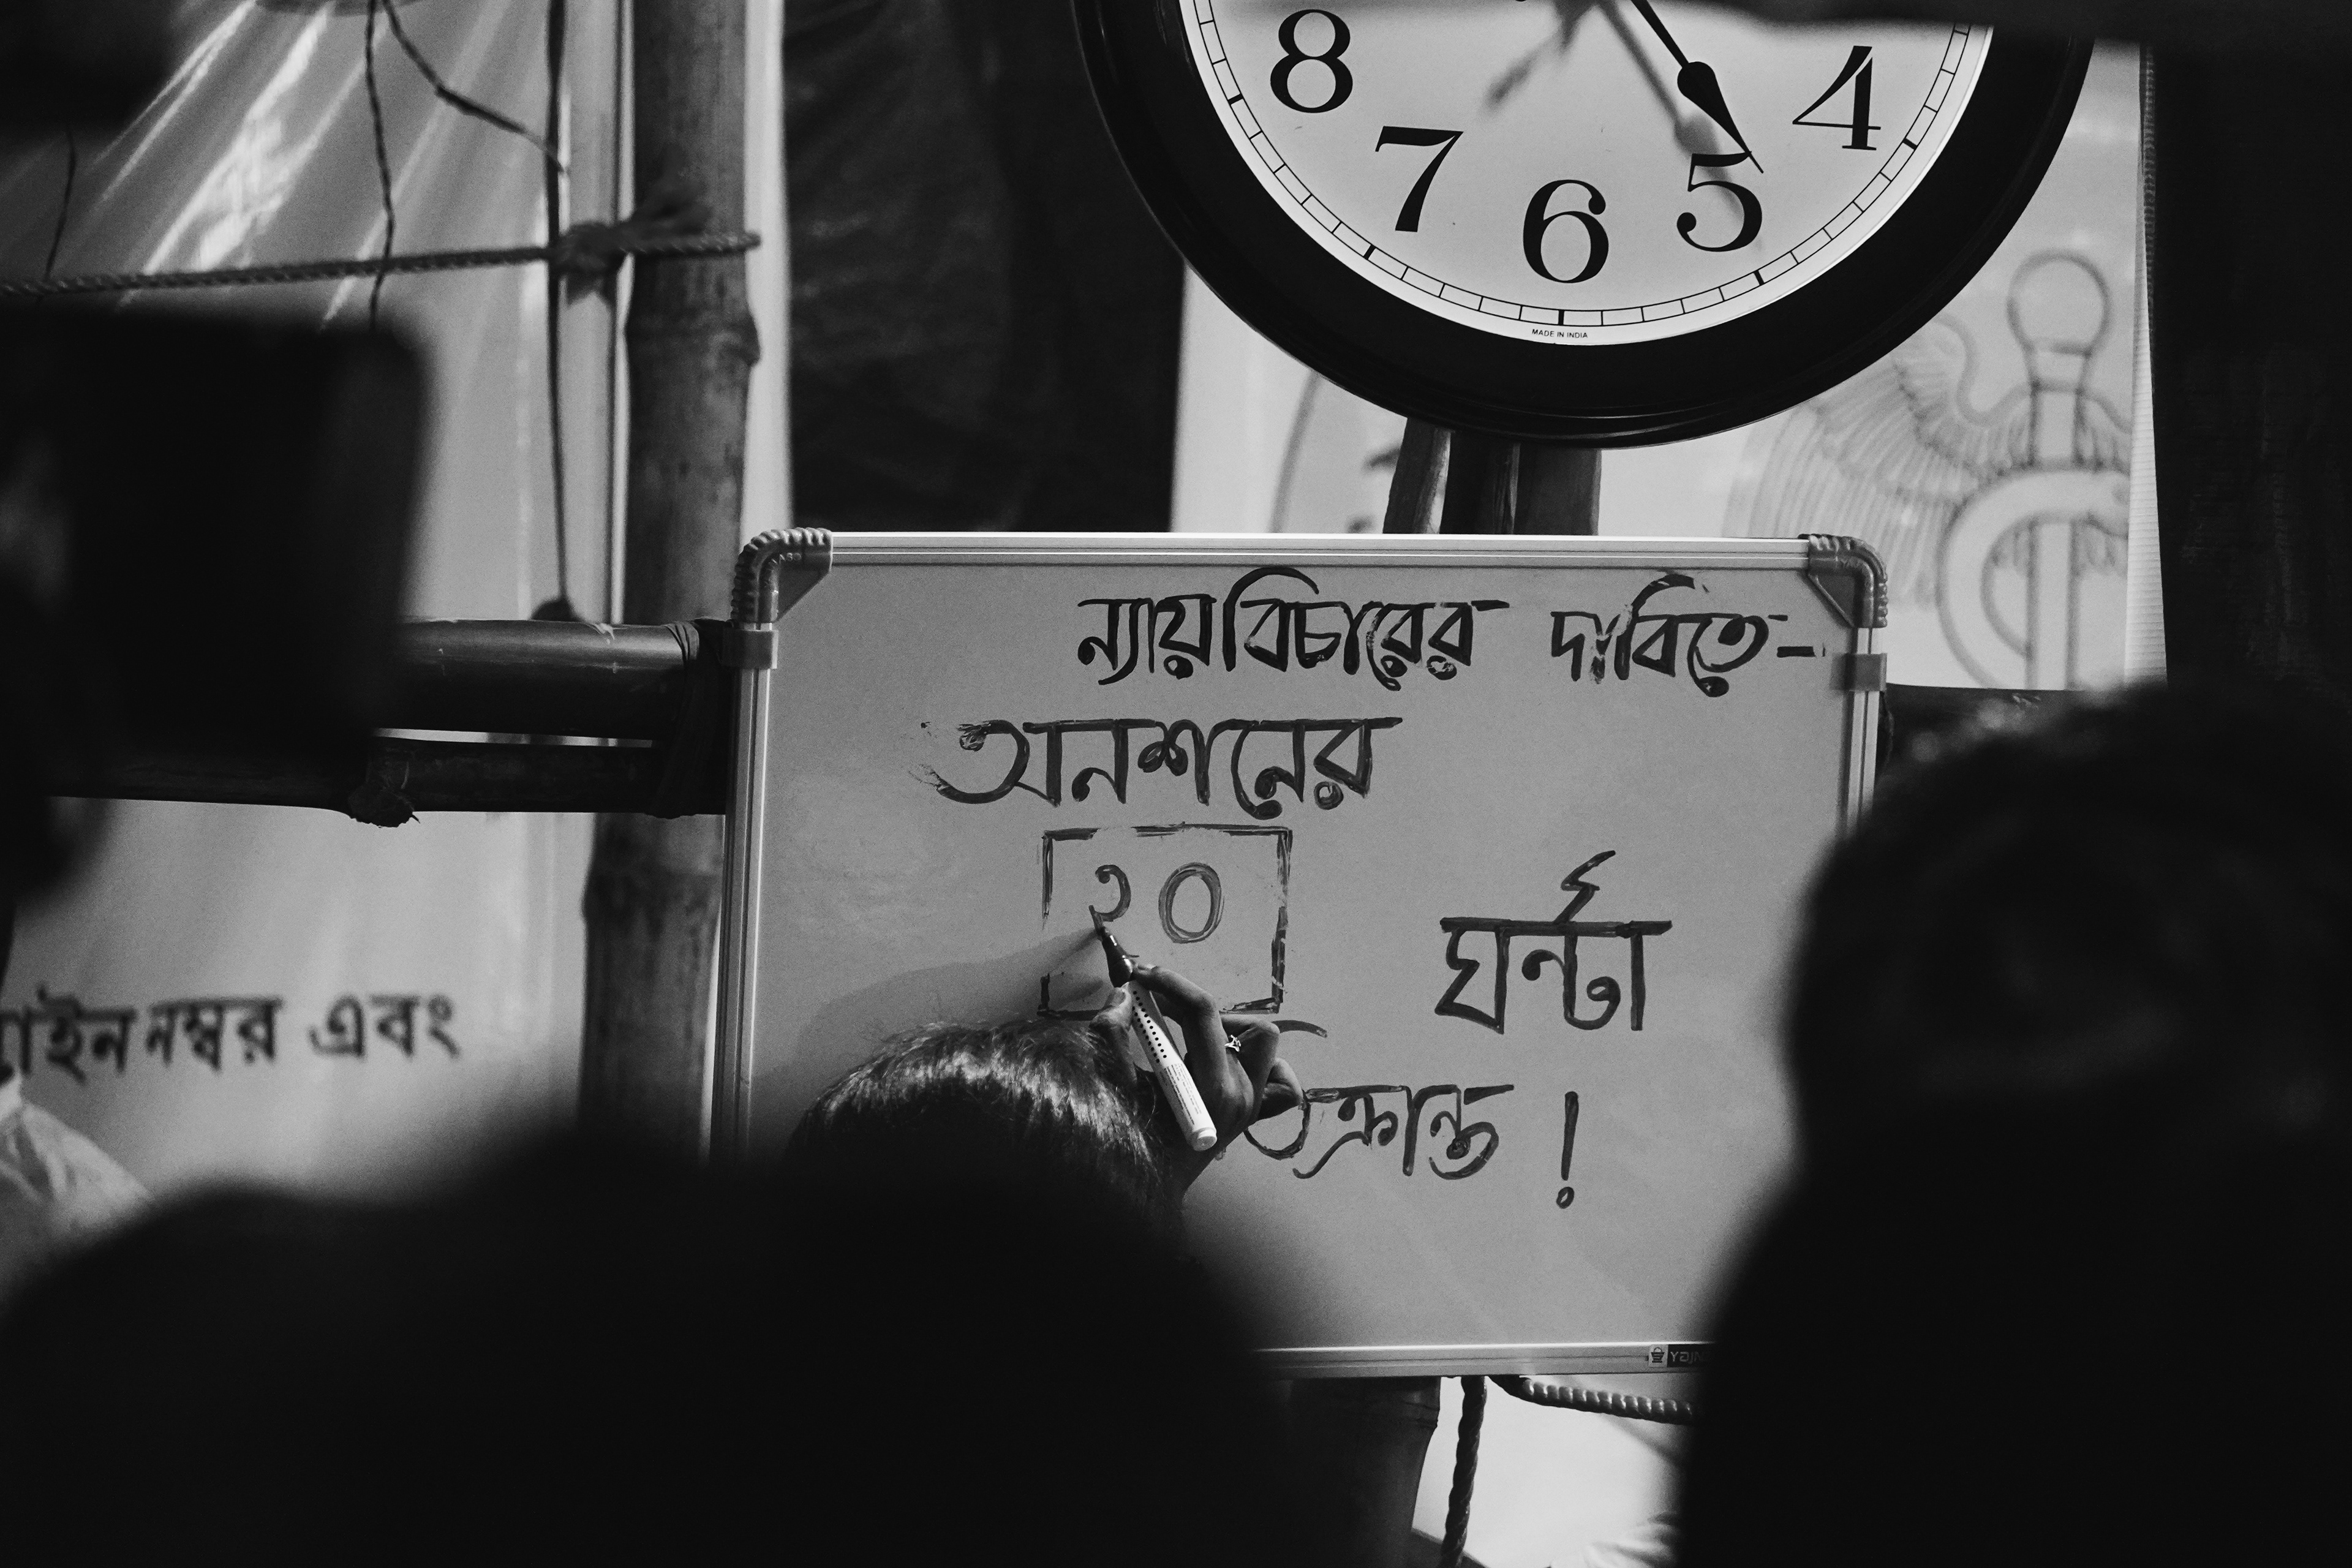 8 7 6 5 4
MADE IN INDIA
ন্যায়বিচারের দাবিতে-
অনশনের
২০ ঘন্টা
!
নম্বর এবং